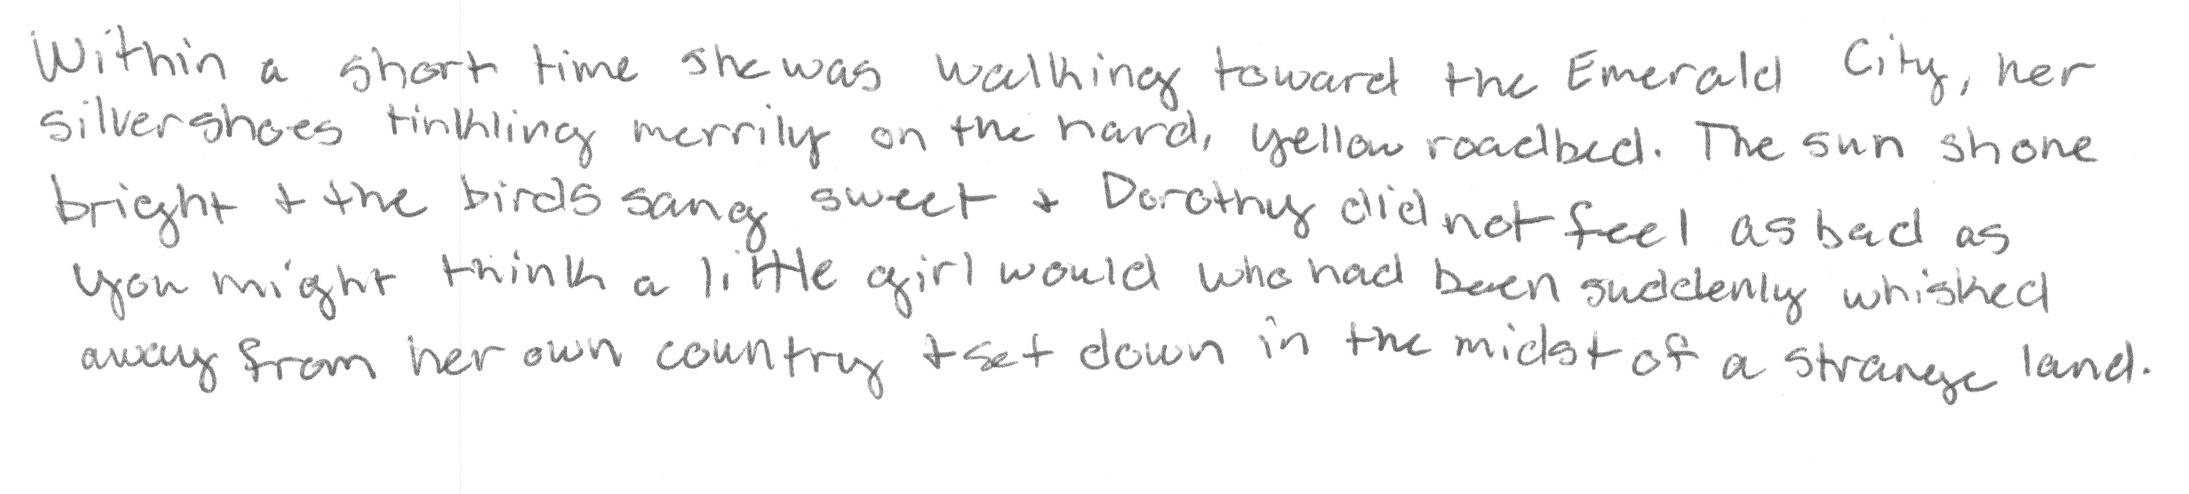 Within a short time she was walking toward the Emerald City, her
silver shoes tinkling merrily on the hard, yellow roadbed. The sun shone
bright + the birds sang sweet + Dorothy did not feel as bad as
you might think a little girl would who had been suddenly whisked
away from her own country + set down in the midst of a strange land.